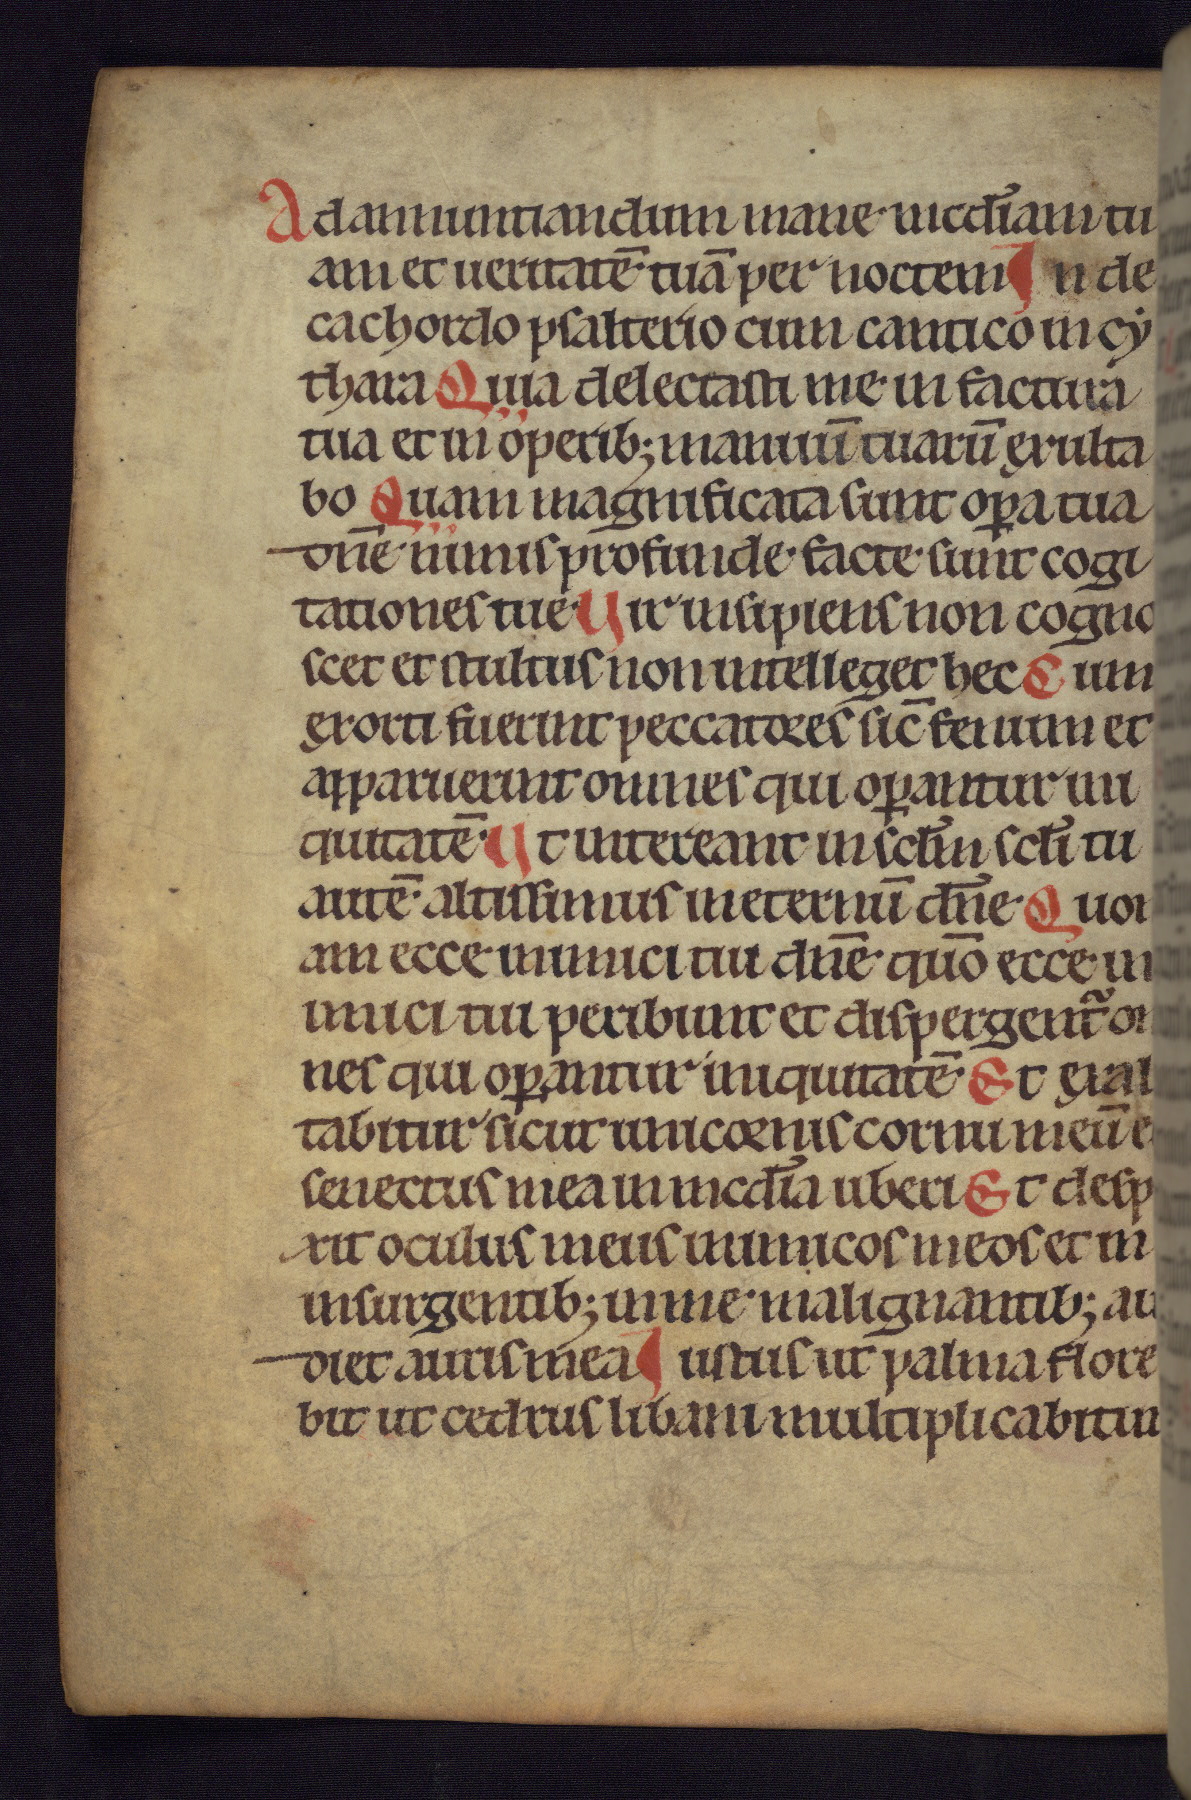 Ad annuntiandum mane mcdīam tu
am et ueritatē tuā per noctem In de
cachordo psalterio cum cantico in cy
thara Quia delectasti me in factura
tua et in operib; manuū tuarū exulta
bo Quam magnificata sunt opa tua
dn̄e nimis profunde facte sunt cogi
tationes tue Uir insipiens non cogno
scet et stultus non intelleget hec Cum
exorti fuerint peccatores sic̄ fenum et
apparuerint omnes qui opantur ini
quitatē Ut intereant in sclm̄ sclī tu
autē altissimus in eternū dn̄e Quon
am ecce inimici tui dn̄e quō ecce in
imici tui peribunt et dispergent᷑ om
nes qui opantur iniquitatē Et exal
tabitur sicut unicornis cornu meū e
senectus mea in mcdīa uberi Et desp
xit oculus meus inimicos meos et in
insurgentib; in me malignantib; au
diet auris mea Iustus ut palma flore
bit ut cedrus libani multiplicabitur